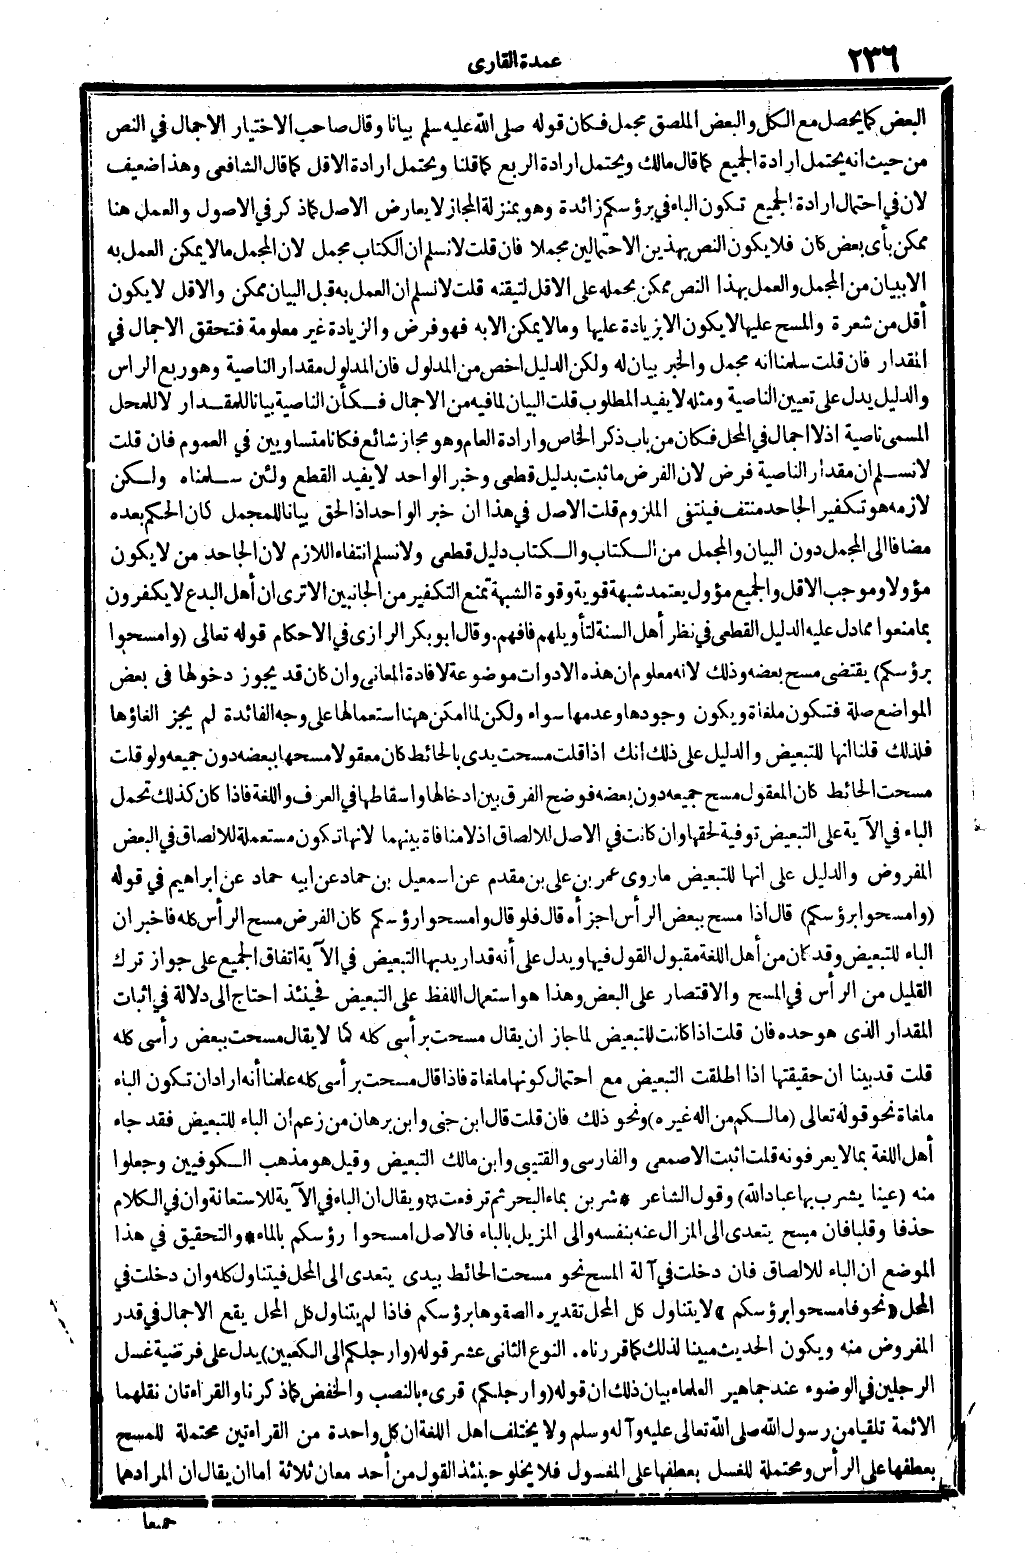 ٢٣٦
عمدة القارى
البعض كما يحصل مع الكل والبعض الملصق مجمل فكان قوله صلى الله عليه سلم بيانا وقال صاحب الاختيار الاجمال في النص
من حيث انه يحتمل ارادة الجميع كما قال مالك ويحتمل ارادة الربع كما قلنا ويحتمل ارادة الاقل كما قال الشافعى وهذا ضعيف
لان في احتمال ارادة الجميع تكون الباء في برؤسكم زائدة وهو بمنزلة المجاز لا يعارض الاصل كما ذكر في الاصول والعمل هنا
ممكن بأى بعض كان فلا يكون النص بهذين الاحتمالين مجملا فان قلت لا نسلم ان الكتاب مجمل لان المجمل مالا يمكن العمل به
الا ببيان من المجمل والعمل بهذا النص ممكن بحمله على الاقل لتيقنه قلت لا نسلم ان العمل به قبل البيان ممكن والاقل لا يكون
أقل من شعرة والمسح عليها لا يكون الا بزيادة عليها وما لا يمكن الا به فهو فرض والزيادة غير معلومة فتحقق الاجمال في
المقدار فان قلت سلمنا انه مجمل والخبر بيان له ولكن الدليل اخص من المدلول فان المدلول مقدار الناصية وهو ربع الراس
والدليل يدل على تعيين الناصية ومثله لا يفيد المطلوب قلت البيان لما فيه من الاجمال فكأن الناصية بيانا للمقدار لا للمحل
المسمى ناصية اذ لا اجمال في المحل فكان من باب ذكر الخاص وارادة العام وهو مجاز شائع فكانا متساويين في العموم فان قلت
لا نسلم ان مقدار الناصية فرض لان الفرض ما ثبت بدليل قطعى وخبر الواحد لا يفيد القطع ولئن سلمناه ولكن
لازمه هو تكفير الجاحد منتف فينتفى الملزوم قلت الاصل في هذا ان خبر الواحد اذا لحق بيانا للمجمل كان الحكم بعده
مضافا الى المجمل دون البيان والمجمل من الكتاب والكتاب دليل قطعى ولا نسلم انتفاء اللازم لان الجاحد من لا يكون
مؤولا وموجب الاقل والجميع مؤول يعتمد شبهة قوية وقوة الشبهة تمنع التكفير من الجانبين الا ترى ان أهل البدع لا يكفرون
بما منعوا مما دل عليه الدليل القطعى في نظر أهل السنة لتأويلهم فافهم. وقال ابو بكر الرازى في الاحكام قوله تعالى (وامسحوا
برؤسكم) يقتضى مسح بعضه وذلك لانه معلوم ان هذه الادوات موضوعة لافادة المعانى وان كان قد يجوز دخولها في بعض
المواضع صلة فتكون ملغاة ويكون وجودها وعدمها سواء ولكن لما امكن ههنا استعمالها على وجه الفائدة لم يجز الغاؤها
فلذلك قلنا انها للتبعيض والدليل على ذلك أنك اذا قلت مسحت يدى بالحائط كان معقولا مسحها ببعضه دون جميعه ولو قلت
مسحت الحائط كان المعقول مسح جميعه دون بعضه فوضح الفرق بين ادخالها واسقاطها في العرف واللغة فاذا كان كذلك تحمل
الباء في الآية على التبعيض توفية لحقها وان كانت في الاصل للالصاق اذ لا منافاة بينهما لانها تكون مستعملة للالصاق في البعض
المفروض والدليل على انها للتبعيض ماروى عمر بن على بن مقدم عن اسمعيل بن حماد عن ابيه حماد عن ابراهيم في قوله
(وامسحوا برؤسكم) قال اذا مسح ببعض الرأس اجزأه قال فلو قال وامسحوا رؤسكم كان الفرض مسح الرأس كله فاخبر ان
الباء للتبعيض وقد كان من أهل اللغة مقبول القول فيها ويدل على أنه قد اريد بها التبعيض في الآية اتفاق الجميع على جواز ترك
القليل من الرأس في المسح والاقتصار على البعض وهذا هو استعمال اللفظ على التبعيض فحينئذ احتاج الى دلالة في اثبات
المقدار الذى هو حده فان قلت اذا كانت للتبعيض لما جاز ان يقال مسحت برأسى كله كما لا يقال مسحت ببعض رأسى كله
قلت قد بينا ان حقيقتها اذا اطلقت التبعيض مع احتمال كونها ملغاة فاذا قال مسحت برأسى كله علمنا أنه اراد ان تكون الباء
ملغاة نحو قوله تعالى (مالكم من اله غيره) ونحو ذلك فان قلت قال ابن جنى وابن برهان من زعم أن الباء للتبعيض فقد جاء
أهل اللغة بما لا يعرفونه قلت اثبت الاصمعى والفارسى والقتيبى وابن مالك التبعيض وقيل هو مذهب الكوفيين وجعلوا
منه (عينا يشرب بها عباد الله) وقول الشاعر * شربن بماء البحر ثم ترفعت * ويقال ان الباء في الآية للاستعانة وان في الكلام
حذفا وقلبا فان مسح يتعدى الى المزال عنه بنفسه والى المزيل بالباء فالاصل امسحوا رؤسكم بالماء * والتحقيق في هذا
الموضع ان الباء للالصاق فان دخلت في آلة المسح نحو مسحت الحائط بيدى يتعدى الى المحل فيتناول كله وان دخلت في
المحل «نحو فامسحوا برؤسكم» لا يتناول كل المحل تقديره الصقوها برؤسكم فاذا لم يتناول كل المحل يقع الاجمال في قدر
المفروض منه ويكون الحديث مبينا لذلك كما قررناه. النوع الثانى عشر قوله (وارجلكم الى الكعبين) يدل على فرضية غسل
الرجلين في الوضوء عند جماهير العلماء بيان ذلك ان قوله (وارجلكم) قرىء بالنصب والخفض كما ذكرنا والقراءتان نقلهما
الائمة تلقيا من رسول الله صلى الله تعالى عليه وآله وسلم ولا يختلف اهل اللغة ان كل واحدة من القراءتين محتملة للمسح
بعطفها على الرأس ومحتملة للغسل بعطفها على المغسول فلا يخلو حينئذ القول من أحد معان ثلاثة اما ان يقال ان المراد هما
جميعا